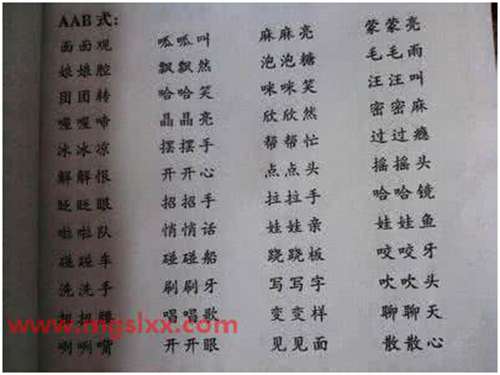 AAB 式：
面面观 呱呱叫 麻麻亮 蒙蒙亮
娘娘腔 飘飘然 泡泡糖 毛毛雨
团团转 哈哈笑 咪咪笑 汪汪叫
喔喔啼 晶晶亮 欣欣然 密密麻
冰冰凉 摆摆手 帮帮忙 过过瘾
解解恨 开开心 点点头 摇摇头
眨眨眼 招招手 拉拉手 哈哈镜
啦啦队 悄悄话 娃娃亲 娃娃鱼
碰碰车 碰碰船 跷跷板 咬咬牙
洗洗手 刷刷牙 写写字 吹吹头
扭扭腰 唱唱歌 变变样 聊聊天
咧咧嘴 开开眼 见见面 散散心
www.mgslxx.com